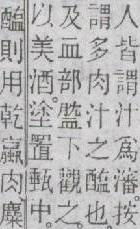 人皆謂汁爲瀋。按
謂多肉汁之醢也
及皿部䀋下觀之。也
以美酒塗置甀中。
醢則用乾䐹肉麋